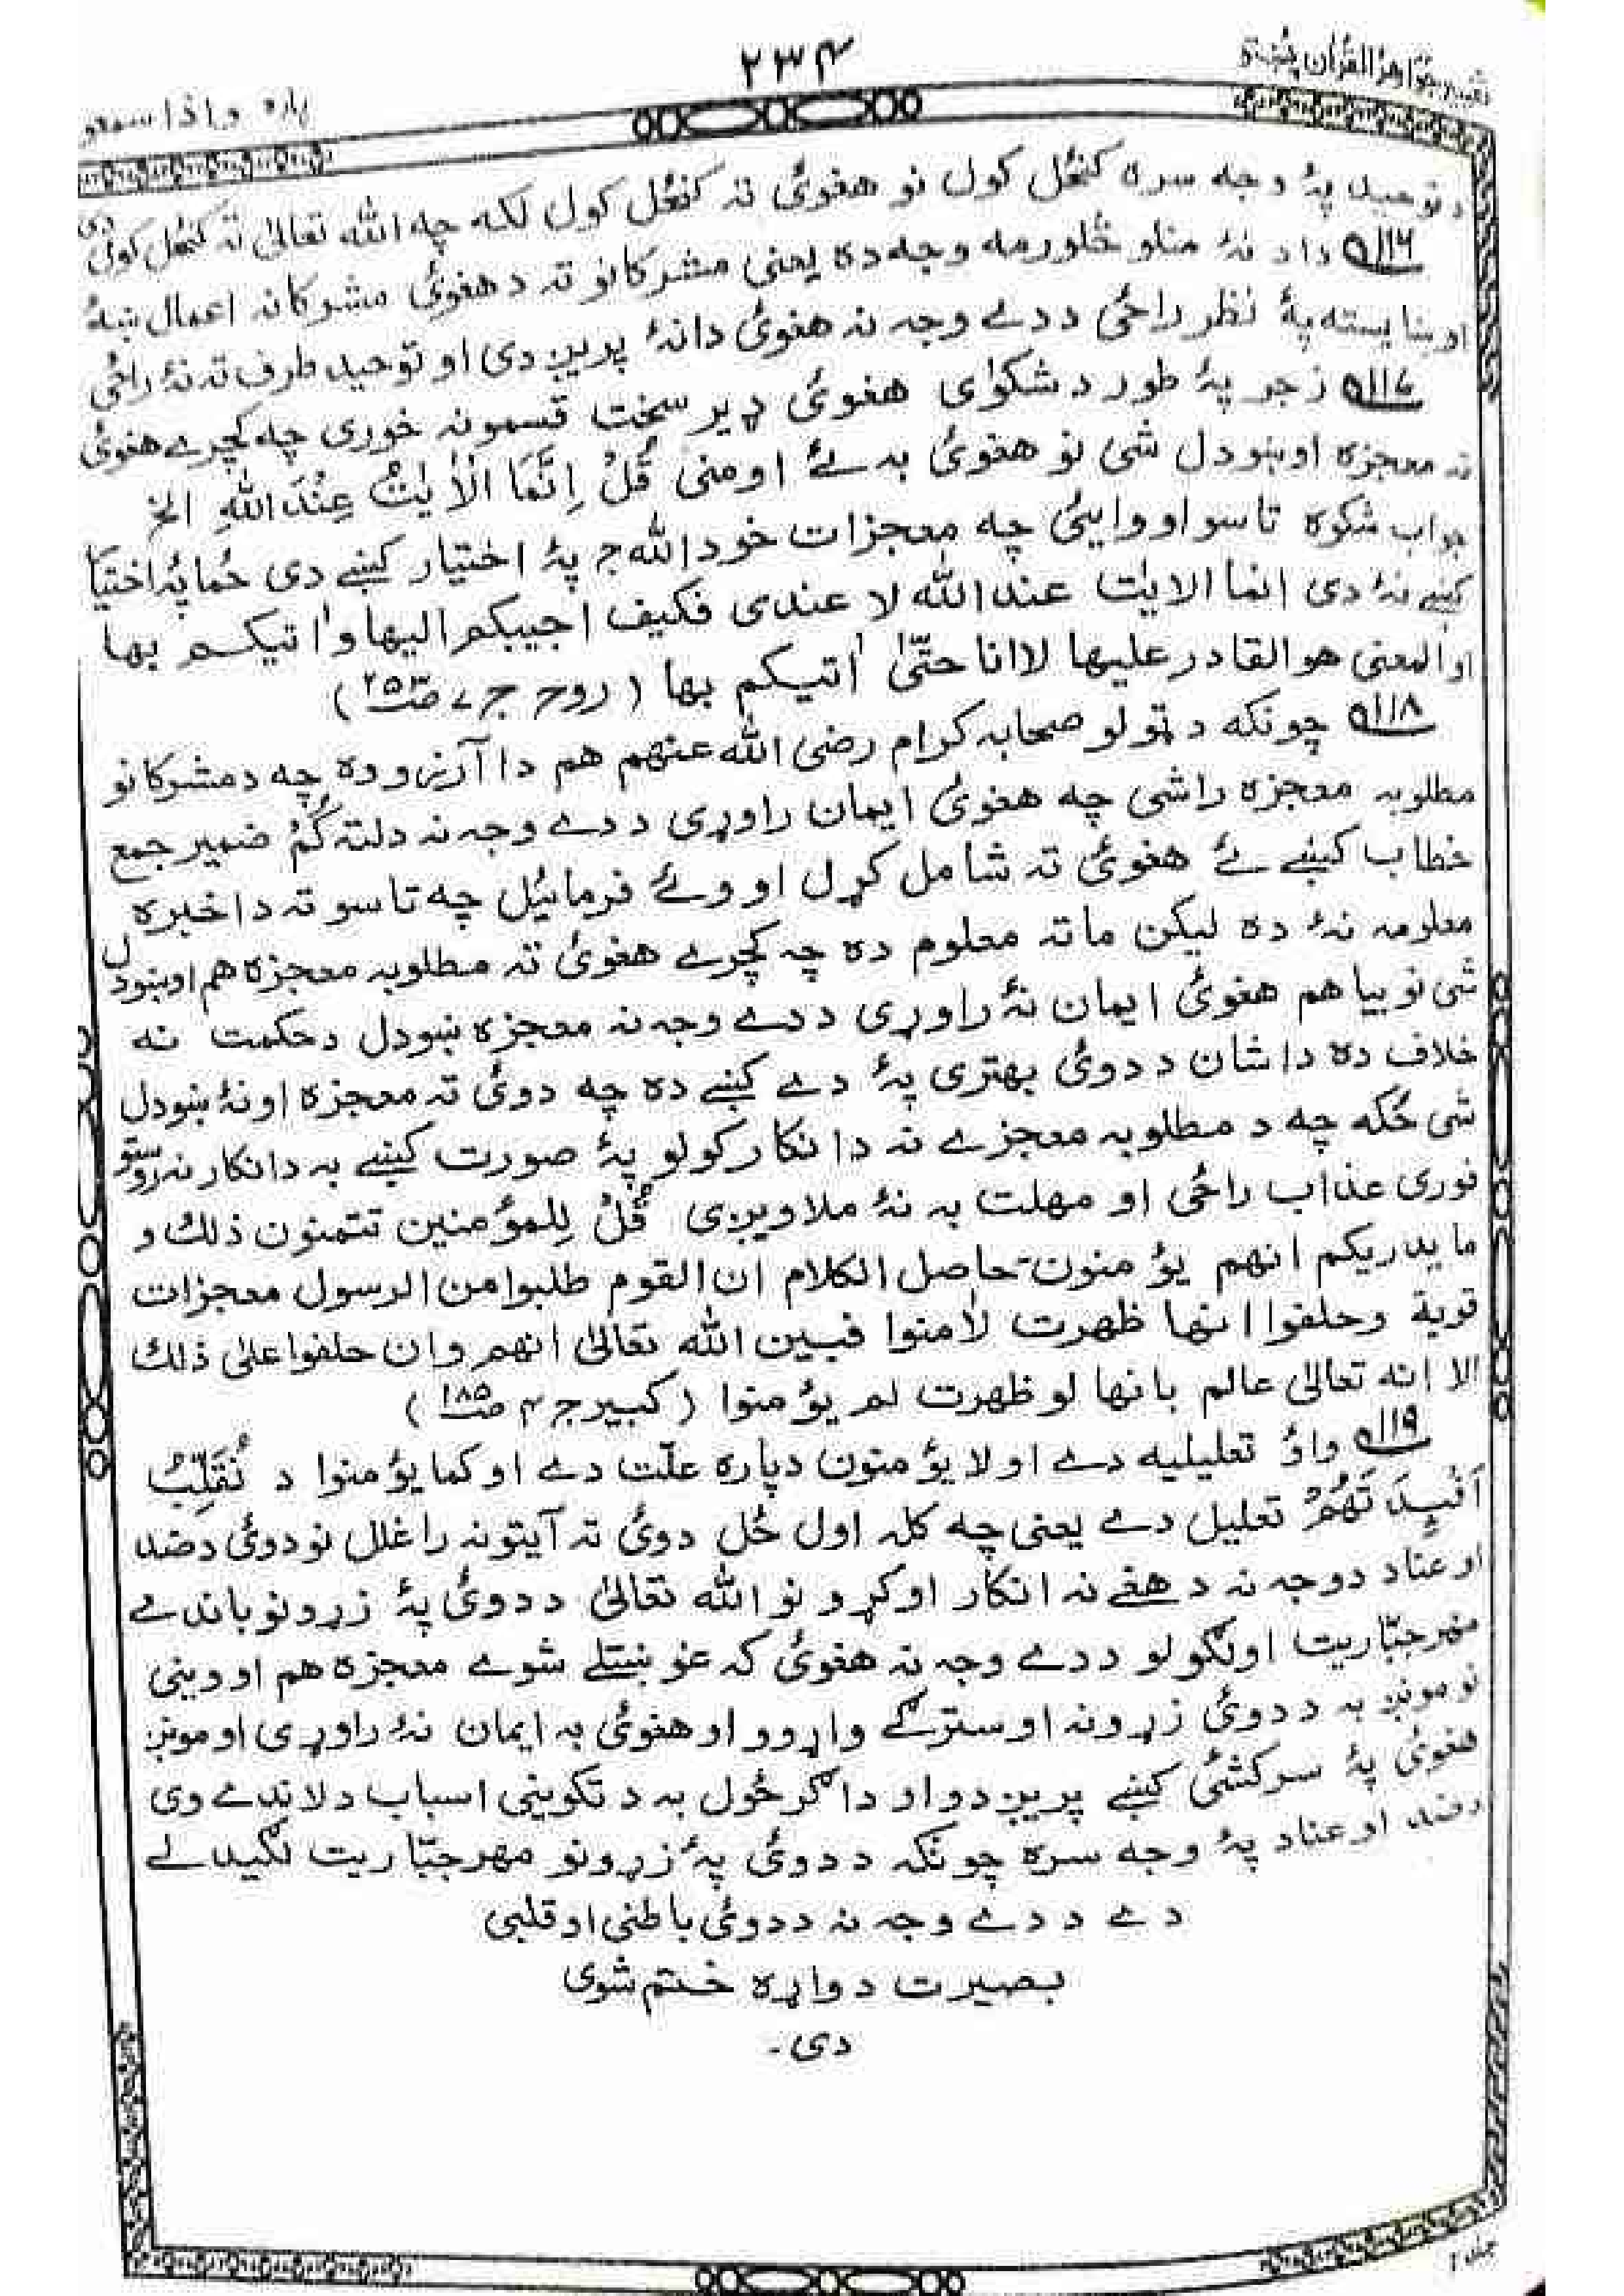 تفسیر جواهر القرآن پښتو
۲۳۴
پاره واذا سمعو
د توحید پۀ وجه سره کنځل کول نو هغوئ ته کنځل کول لکه چه الله تعالیٰ ته کنځل کول دی
۱۱۶ دا د نۀ منلو څلورمه وجه ده یعنی مشرکانو ته د هغوئ مشرکانه اعمال ښۀ
او ښایسته پۀ نظر راځی د دے وجه نه هغوئ دا نۀ پریږدی او توحید طرف ته نۀ راځی
۱۱۷ زجر پۀ طور د شکوٰی هغوئ ډیر سخت قسمونه خوری چه کچرے هغوئ
ته معجزه اوښودل شی نو هغوئ به ئے اومنی قُلْ اِنَّمَا الْاٰیٰتُ عِنْدَ اللهِ الخ
جواب شکوه تاسو اووایئ چه معجزات خود الله ج پۀ اختیار کښے دی ځما پۀ اختیا
کښے نۀ دی انما الایٰت عند الله لا عندی فکیف اجیبکم الیها واٰتیکم بها
او المعنی هو القادر علیها لا انا حتّیٰ اٰتیکم بها (روح ج ۷ صـ ۲۵۳)
۱۱۸ چونکه د ټولو صحابه کرام رضی الله عنهم هم دا آرزو وه چه د مشرکانو
مطلوبه معجزه راشی چه هغوئ ایمان راوړی د دے وجه نه دلته کُمْ ضمیر جمع
خطاب کښے ئے هغوئ ته شامل کړل او وئے فرمائیل چه تاسو ته دا خبره
معلومه نۀ ده لیکن ما ته معلوم ده چه کچرے هغوئ ته مطلوبه معجزه هم اوښودل
شی نو بیا هم هغوئ ایمان نۀ راوړی د دے وجه نه معجزه ښودل د حکمت نه
خلاف ده دا شان د دوئ بهتری پۀ دے کښے ده چه دوئ ته معجزه اونۀ ښودل
شی ځکه چه د مطلوبه معجزے نه د انکار کولو پۀ صورت کښے به د انکار نه روستو
فوری عذاب راځی او مهلت به نۀ ملاویږی قُلْ لِلمؤمنین تتمنون ذلك و
ما یدریکم انهم یؤمنون حاصل الکلام ان القوم طلبوا من الرسول معجزات
قویة وحلفوا انها ظهرت لاٰمنوا فبین الله تعالیٰ انهم وان حلفوا علیٰ ذلك
الا انه تعالیٰ عالم بانها لو ظهرت لم یؤمنوا (کبیر ج ۴ صـ ۱۸۵)
۱۱۹ واؤ تعلیلیه دے او لا یؤمنون دپاره علّت دے او کما یؤمنوا د نُقَلِّبُ
اَفْـِٕدَتَهُمْ تعلیل دے یعنی چه کله اول ځل دوئ ته آیتونه راغلل نو دوئ د ضد
او عناد د وجه نه د هغے نه انکار اوکړو نو الله تعالیٰ د دوئ پۀ زړونو باندے
مهر جبّاریت اولګولو د دے وجه نه هغوئ که غوښتلے شوے معجزه هم اووینی
نو مونږ به د دوئ زړونه او سترګے واړوو او هغوئ به ایمان نۀ راوړی او مونږ
هغوئ پۀ سرکشئ کښے پریږدو او دا ګرځول به د تکوینی اسباب د لاندے وی
د ضد او عناد پۀ وجه سره چونکه د دوئ پۀ زړونو مهر جبّاریت لګیدلے
دے د دے وجه نه د دوئ باطنی او قلبی
بصیرت دواړه ختم شوی
دی۔
جلد ۲